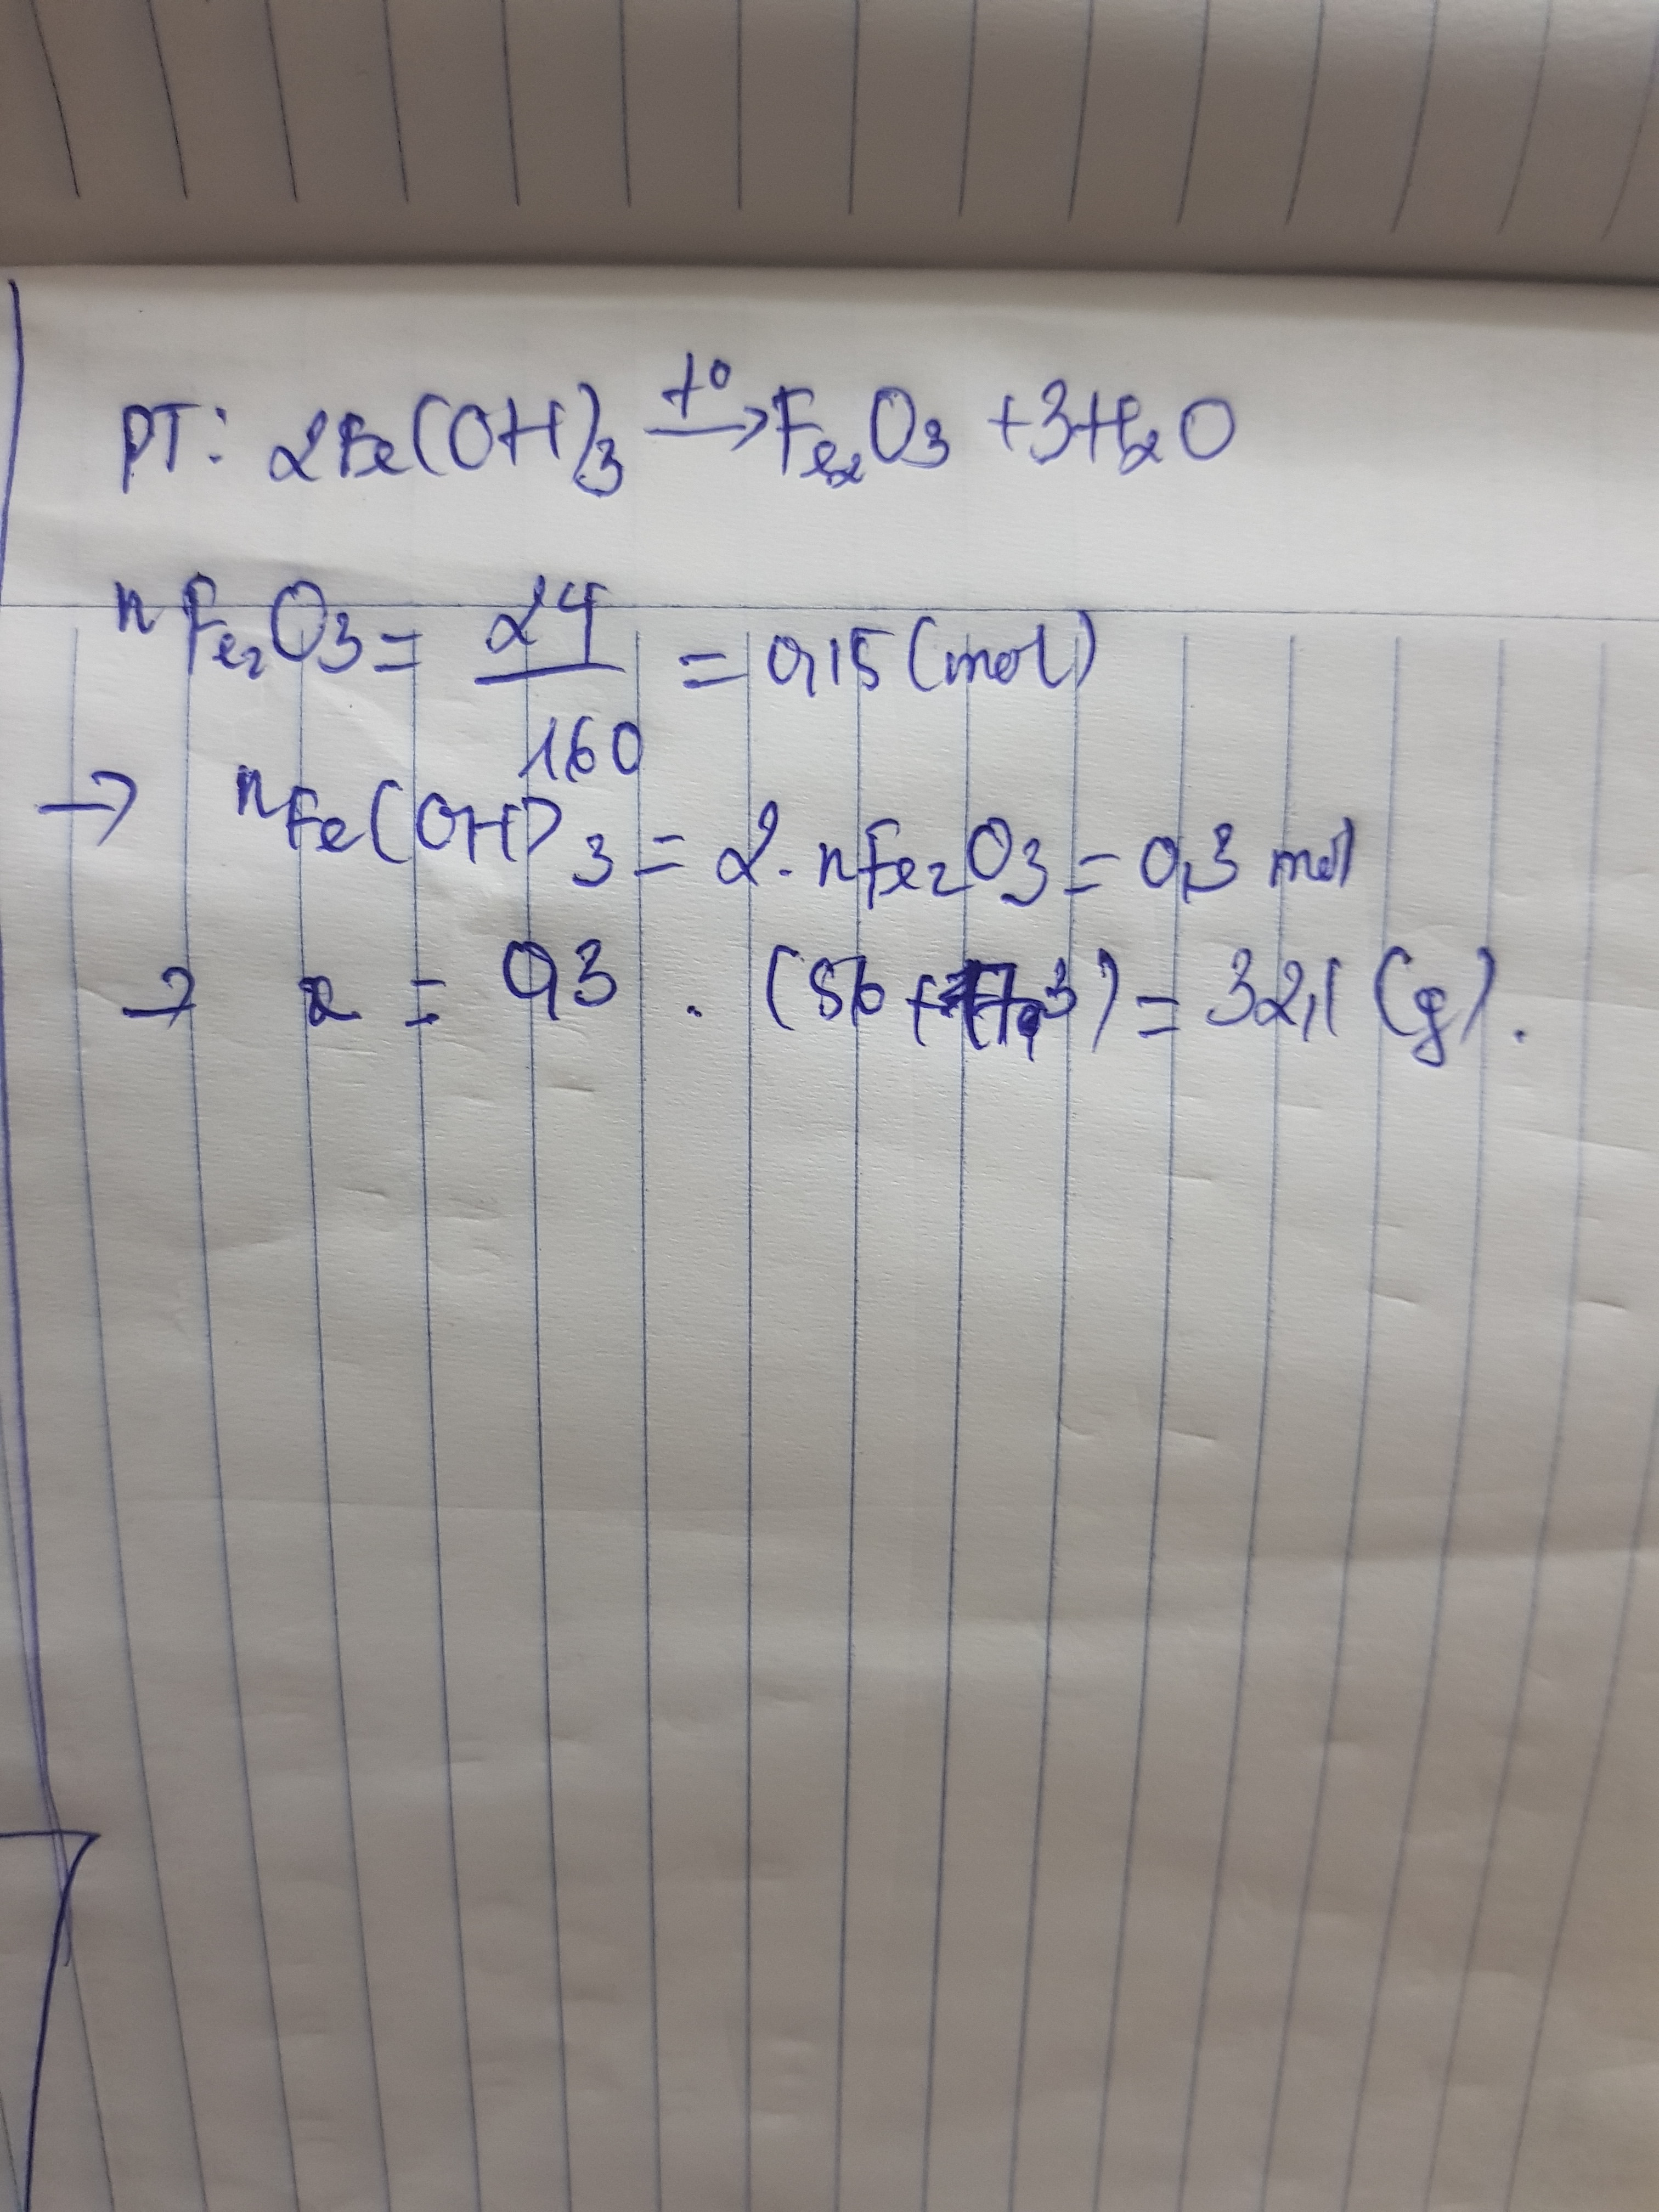 PT: 2Fe(OH)3 t° → Fe2O3 + 3H2O
nFe2O3 = 24 / 160 = 0,15 (mol)
→ nFe(OH)3 = 2. nFe2O3 = 0,3 mol
→ a = 0,3 . (56 + 17.3) = 32,1 (g).